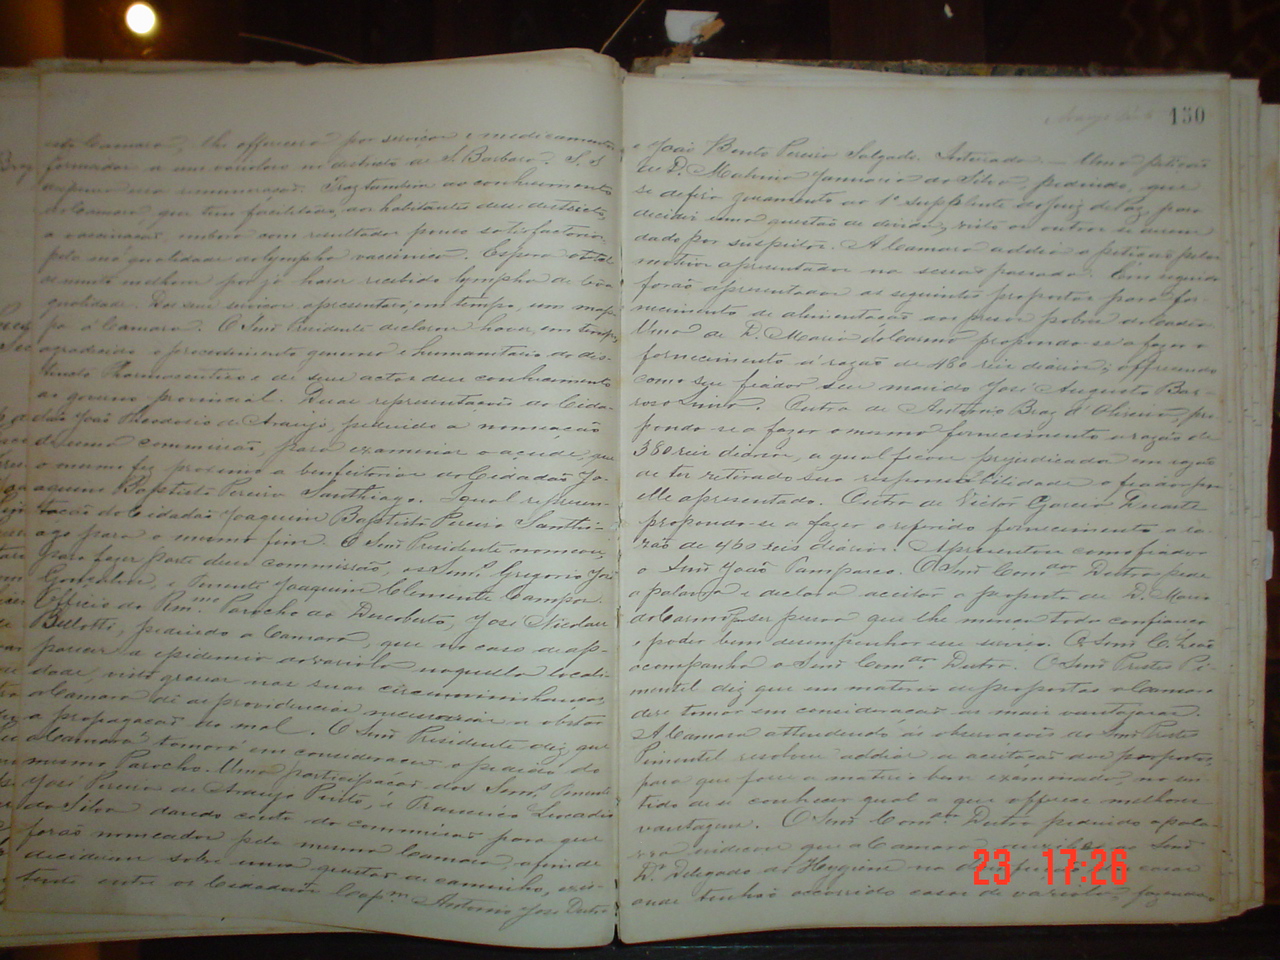 esta Camara, lhe offerecer por serviços e medicamentos
fornecidos a um varioloso no districto de S. Barbara. S. S.
remuneração. Traz tambem ao conhecimento
da Camara, que tem facilitado, aos habitantes desse districto,
a vaccinação, embora com resultados pouco satisfactorios,
pela má qualidade da lympha vaccinica. Espera obtel
os muito melhores por já haver recebido lympha de boa
qualidade. Dos seus serviços apresentará, em tempo, um map-
pa á Camara. O Senr. Presidente declarou haver, em tempo,
agradecido o procedimento generoso e humanitario do dis-
tincto Pharmaceutico e de seus actos deu conhecimento
ao governo provincial. Duas representações do Cida-
dão João Theodosio de Araujo, pedindo a nomeação
de uma commissão, para examinar o açude, que
o mesmo fez proximo a benfeitorias do Cidadão Jo-
aquim Baptista Pereira Santhiago. Igual represen-
tação do Cidadão Joaquim Baptista Pereira Santhi-
ago para o mesmo fim. O Senr. Presidente nomeou
para fazer parte dessa commissão, os Senrs. Gregorio José
Gonsalves, e Tenente Joaquim Clemente Campos.
Officio do Rmo. Parocho do Descoberto, José Nicolau
Bellotti, pedindo a Camara, que no caso de ap-
parecer a epidemia da variola naquella locali-
dade, visto grassar nas suas circumvisinhanças,
a Camara dê as providencias necessarias a obstar
a propagação do mal. O Senr. Presidente diz que
a Camara tomará em consideração o pedido do
mesmo Parocho. Uma participação dos Senrs. Tenente
José Pereira de Araujo Pinto, e Francisco Leocadio
da Silva dando conta da commissão para que
forão nomeados pela mesma Camara, afim de
decidirem sobre uma questão de caminho, exis-
tente entre os Cidadãos Capm. Antonio José Dutra
150
e João Bento Pereira Salgado. Inteirada. — Uma petição
de D. Januaria da Silva, pedindo, que
se defira juramento ao 1º supplente do Juiz de Paz, para
decidir uma questão de divisa, visto os outros se acharem
dado por suspeitos. A Camara addia a petição pelos
motivos apresentados na sessão passada. Em seguida
forão apresentadas as seguintes propostas para for-
necimento de alimentação aos presos pobres da Cadea.
Uma de D. Maria do Carmo propondo-se a fazer o
fornecimento á razão de 480 reis diarios; offrecendo
como seu fiador seu marido José Augusto Bar-
roso Outra de Antonio Braz d'Oliveira, pro-
pondo-se a fazer o mesmo fornecimento a razão de
380 reis diarios, a qual ficou prejudicada em razão
de ter retirado sua responsabilidade o fiador por
elle apresentado. Outra de Victor Garcia Duarte
propondo-se a fazer o referido fornecimento a ra-
zão de 460 reis diarios. Apresentou como fiador
o Senr. João Pamparo. O Senr. Comdor. Dutra pede
a palavra e declara aceitar a proposta de D. Maria
do Carmo por ser pessoa que lhe merece toda confiança
e poder bem desempenhar esse serviço. O Senr. C. Leão
acompanha o Senr. Comdor. Dutra. O Senr. Prestes Pi-
mentel diz que em materia de propostas a Camara
deve tomar em consideração as mais vantajosas.
A Camara attendendo ás observações do Senr. Prestes
Pimentel resolveu addiar a aceitação das propostas,
para que fosse a materia bem examinada, no sen-
tido de se conhecer qual a que offrece melhores
vantagens. O Senr. Comdor. Dutra pedindo a pala-
vra indicou que a Camara ao Senr.
Dr. Delegado da Hygiene
onde tenhão occorrido casos de variola, fazendo
23 17:26